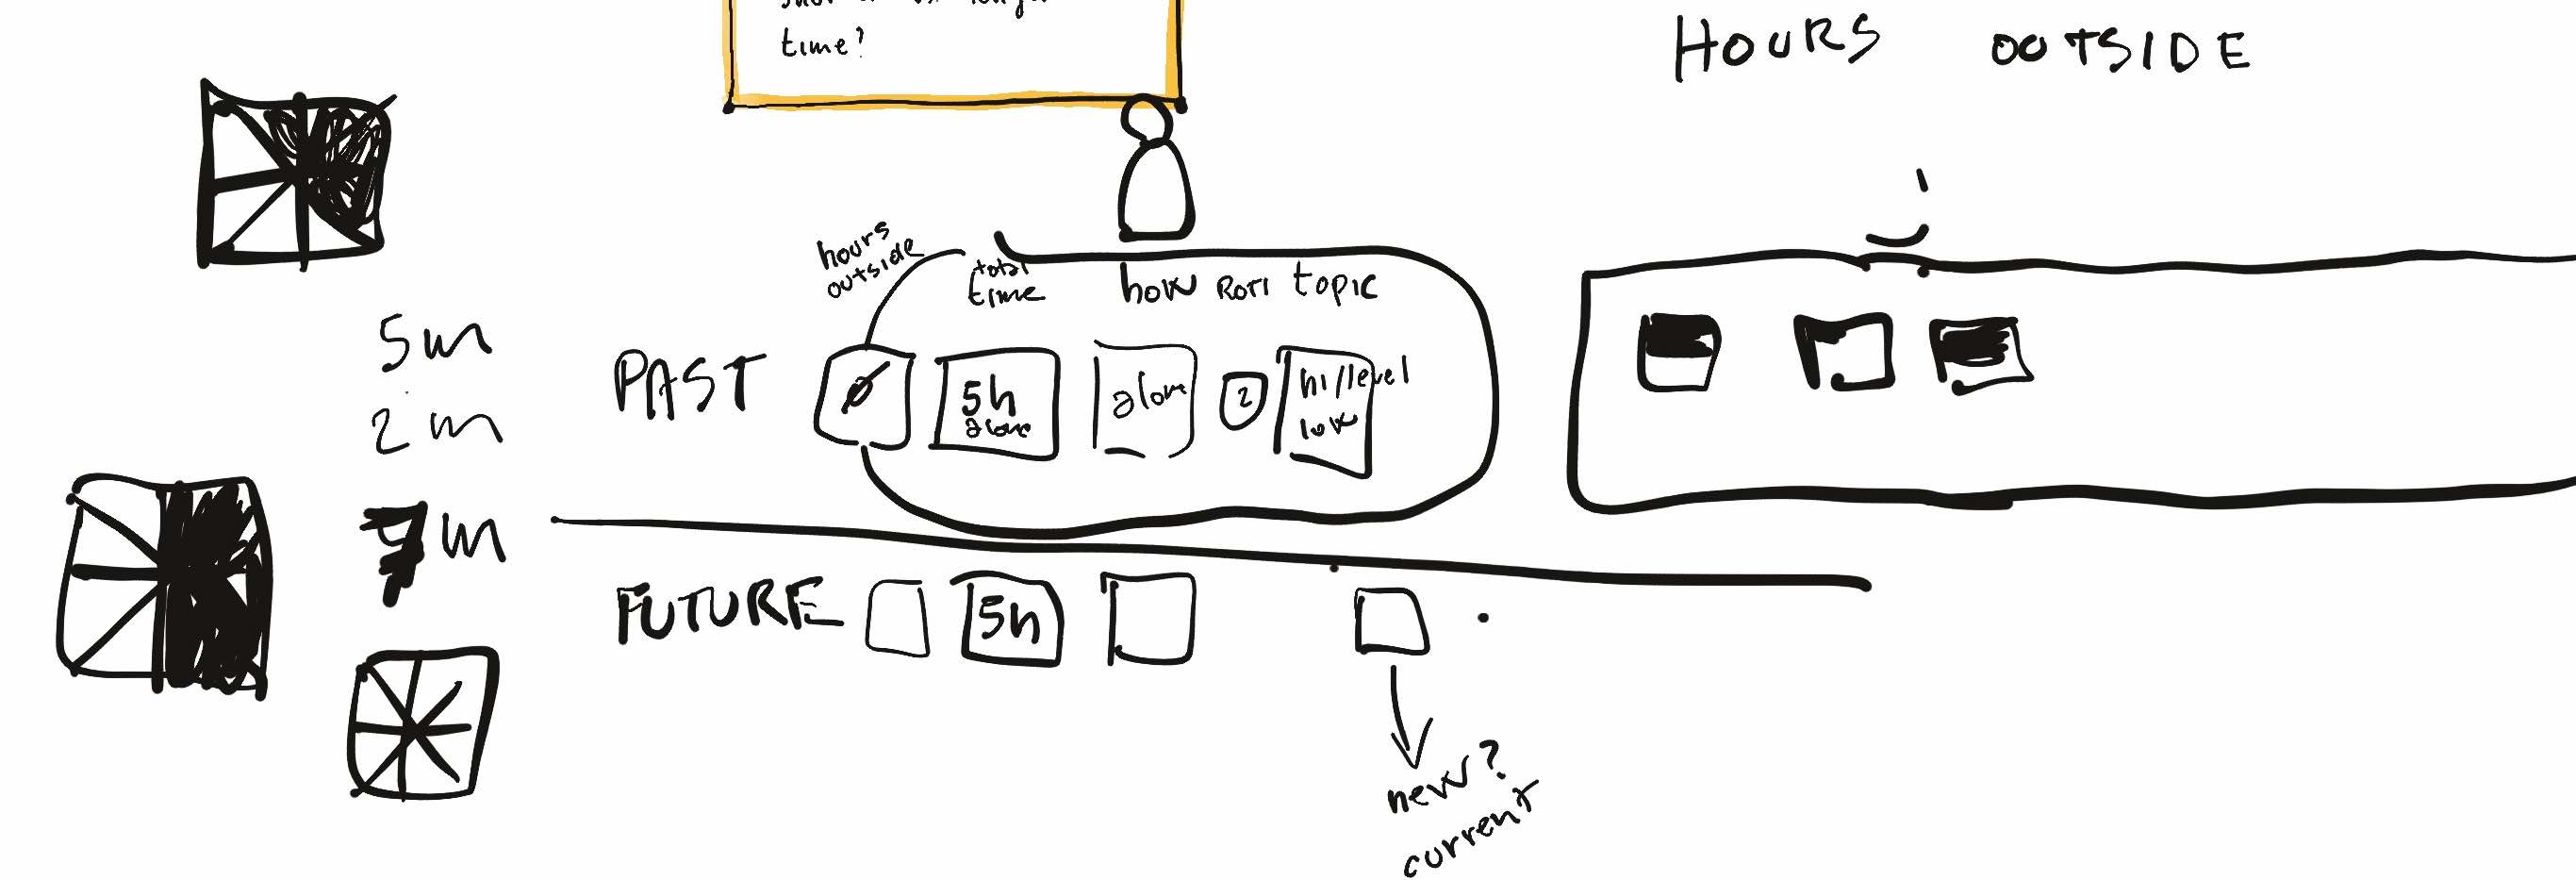 time?
HOURS OUTSIDE
hours
outside
total
time
how ROTI topic
5m
2m
7m
PAST
Ø
5h
alone
alone
2
hi/level
low
FUTURE
5h
new?
current